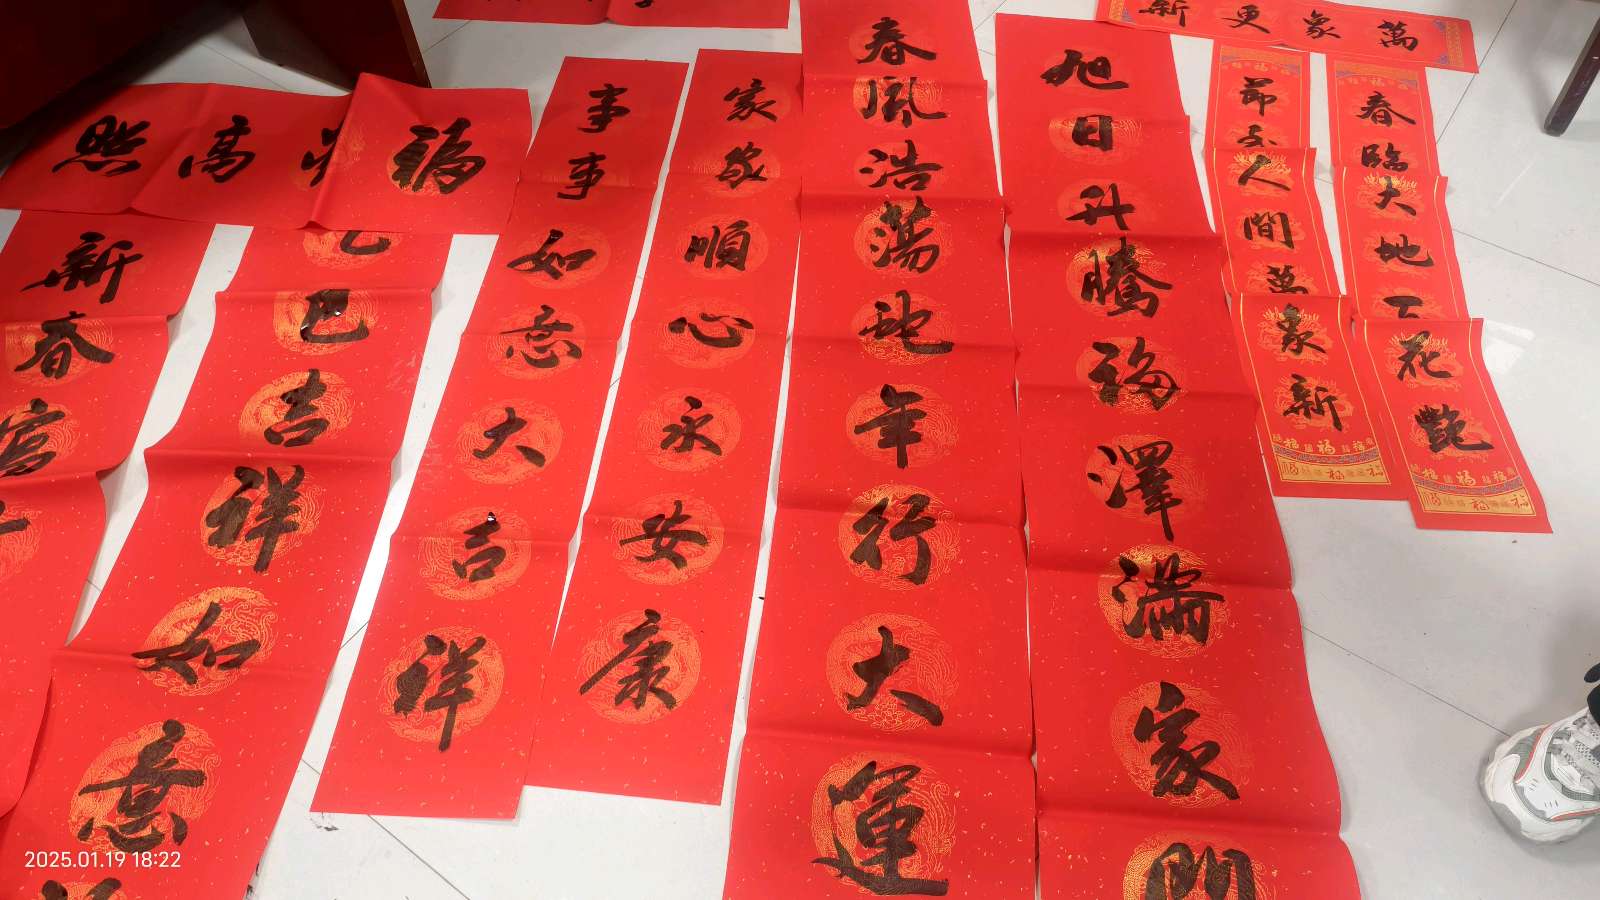 萬象更新
春臨大地花艷
節人間萬象新
旭日升騰福澤滿家門
春風浩蕩虵年行大運
家家順心永安康
事事如意大吉祥
福高照
巳吉祥如意
新春富
2025.01.19 18:22